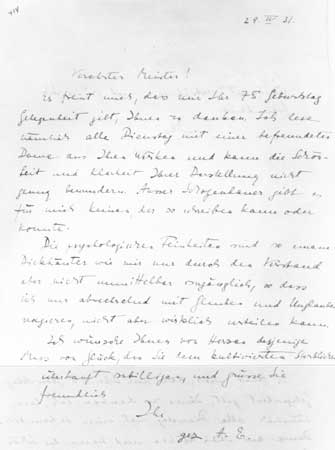 29. IV 31.
Verehrter Meister!
Es freut mich, dass mir Ihr 75 Geburtstag
Gelegenheit gibt, Ihnen zu danken. Ich lese
nämlich alle Dienstag mit einer befreundeten
Dame aus Ihren Werken und kann die Schön-
heit und Klarheit Ihrer Darstellung nicht
genug bewundern. Ausser Schopenhauer gibt es
für mich keinen, der so schreiben kann oder
konnte.
Die psychologischen Feinheiten sind so einem
Dickhäuter wie mir nur durch den Verstand
aber nicht unmittelbar zugänglich, so dass
ich nur abwechselnd mit Glauben und Unglauben
reagieren, nicht aber wirklich urteilen kann.
Ich wünsche Ihnen von Herzen dasjenige
Mass von Glück, das Sie dem kultivierten
überhaupt zubilligen, und grüsse Sie
freundlich
Ihr
gez A. E.